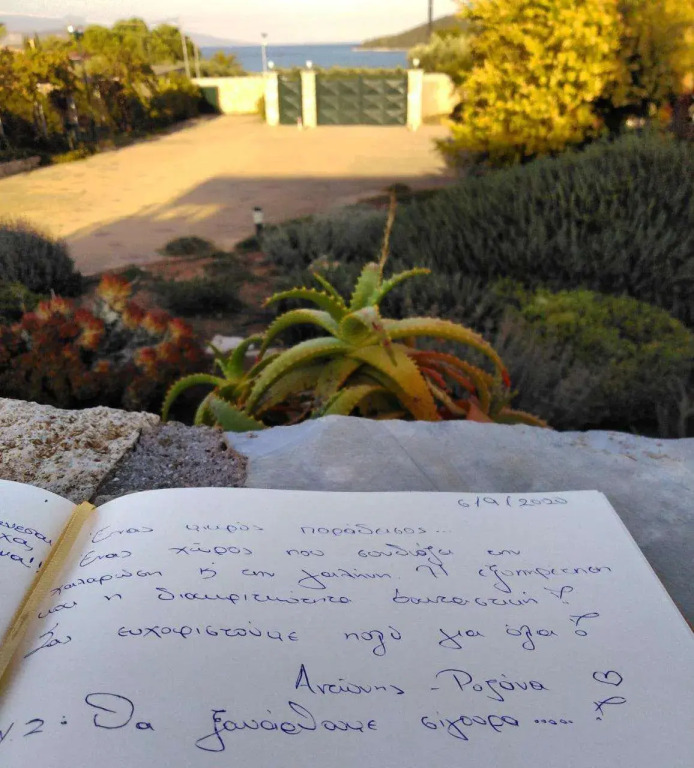 6/9/2020
Ένας μικρός παράδεισος...
Ένας χώρος που συνδιάζει την
χαλαρώση & την γαλήνη. Η εξυπηρέτηση
και η διακριτικότητα φανταστική!
Σας ευχαριστούμε πολύ για όλα!
Αντώνης - Ροζάνα ♡
Υ.2: Θα ξανάρθουμε σίγουρα.....!